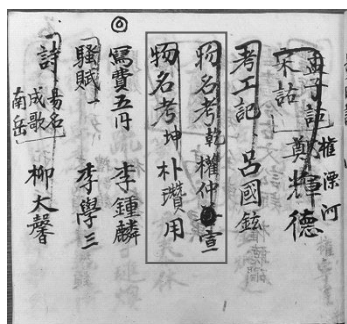 孟子註 權濼河
朱詁 鄭輝德
考工記 呂國鉉
物名考乾 權仲壹
物名考坤 朴瓚用
寫費五円 李鍾麟
騷賦一 李學三
詩 易名 成歌 南岳 柳大馨